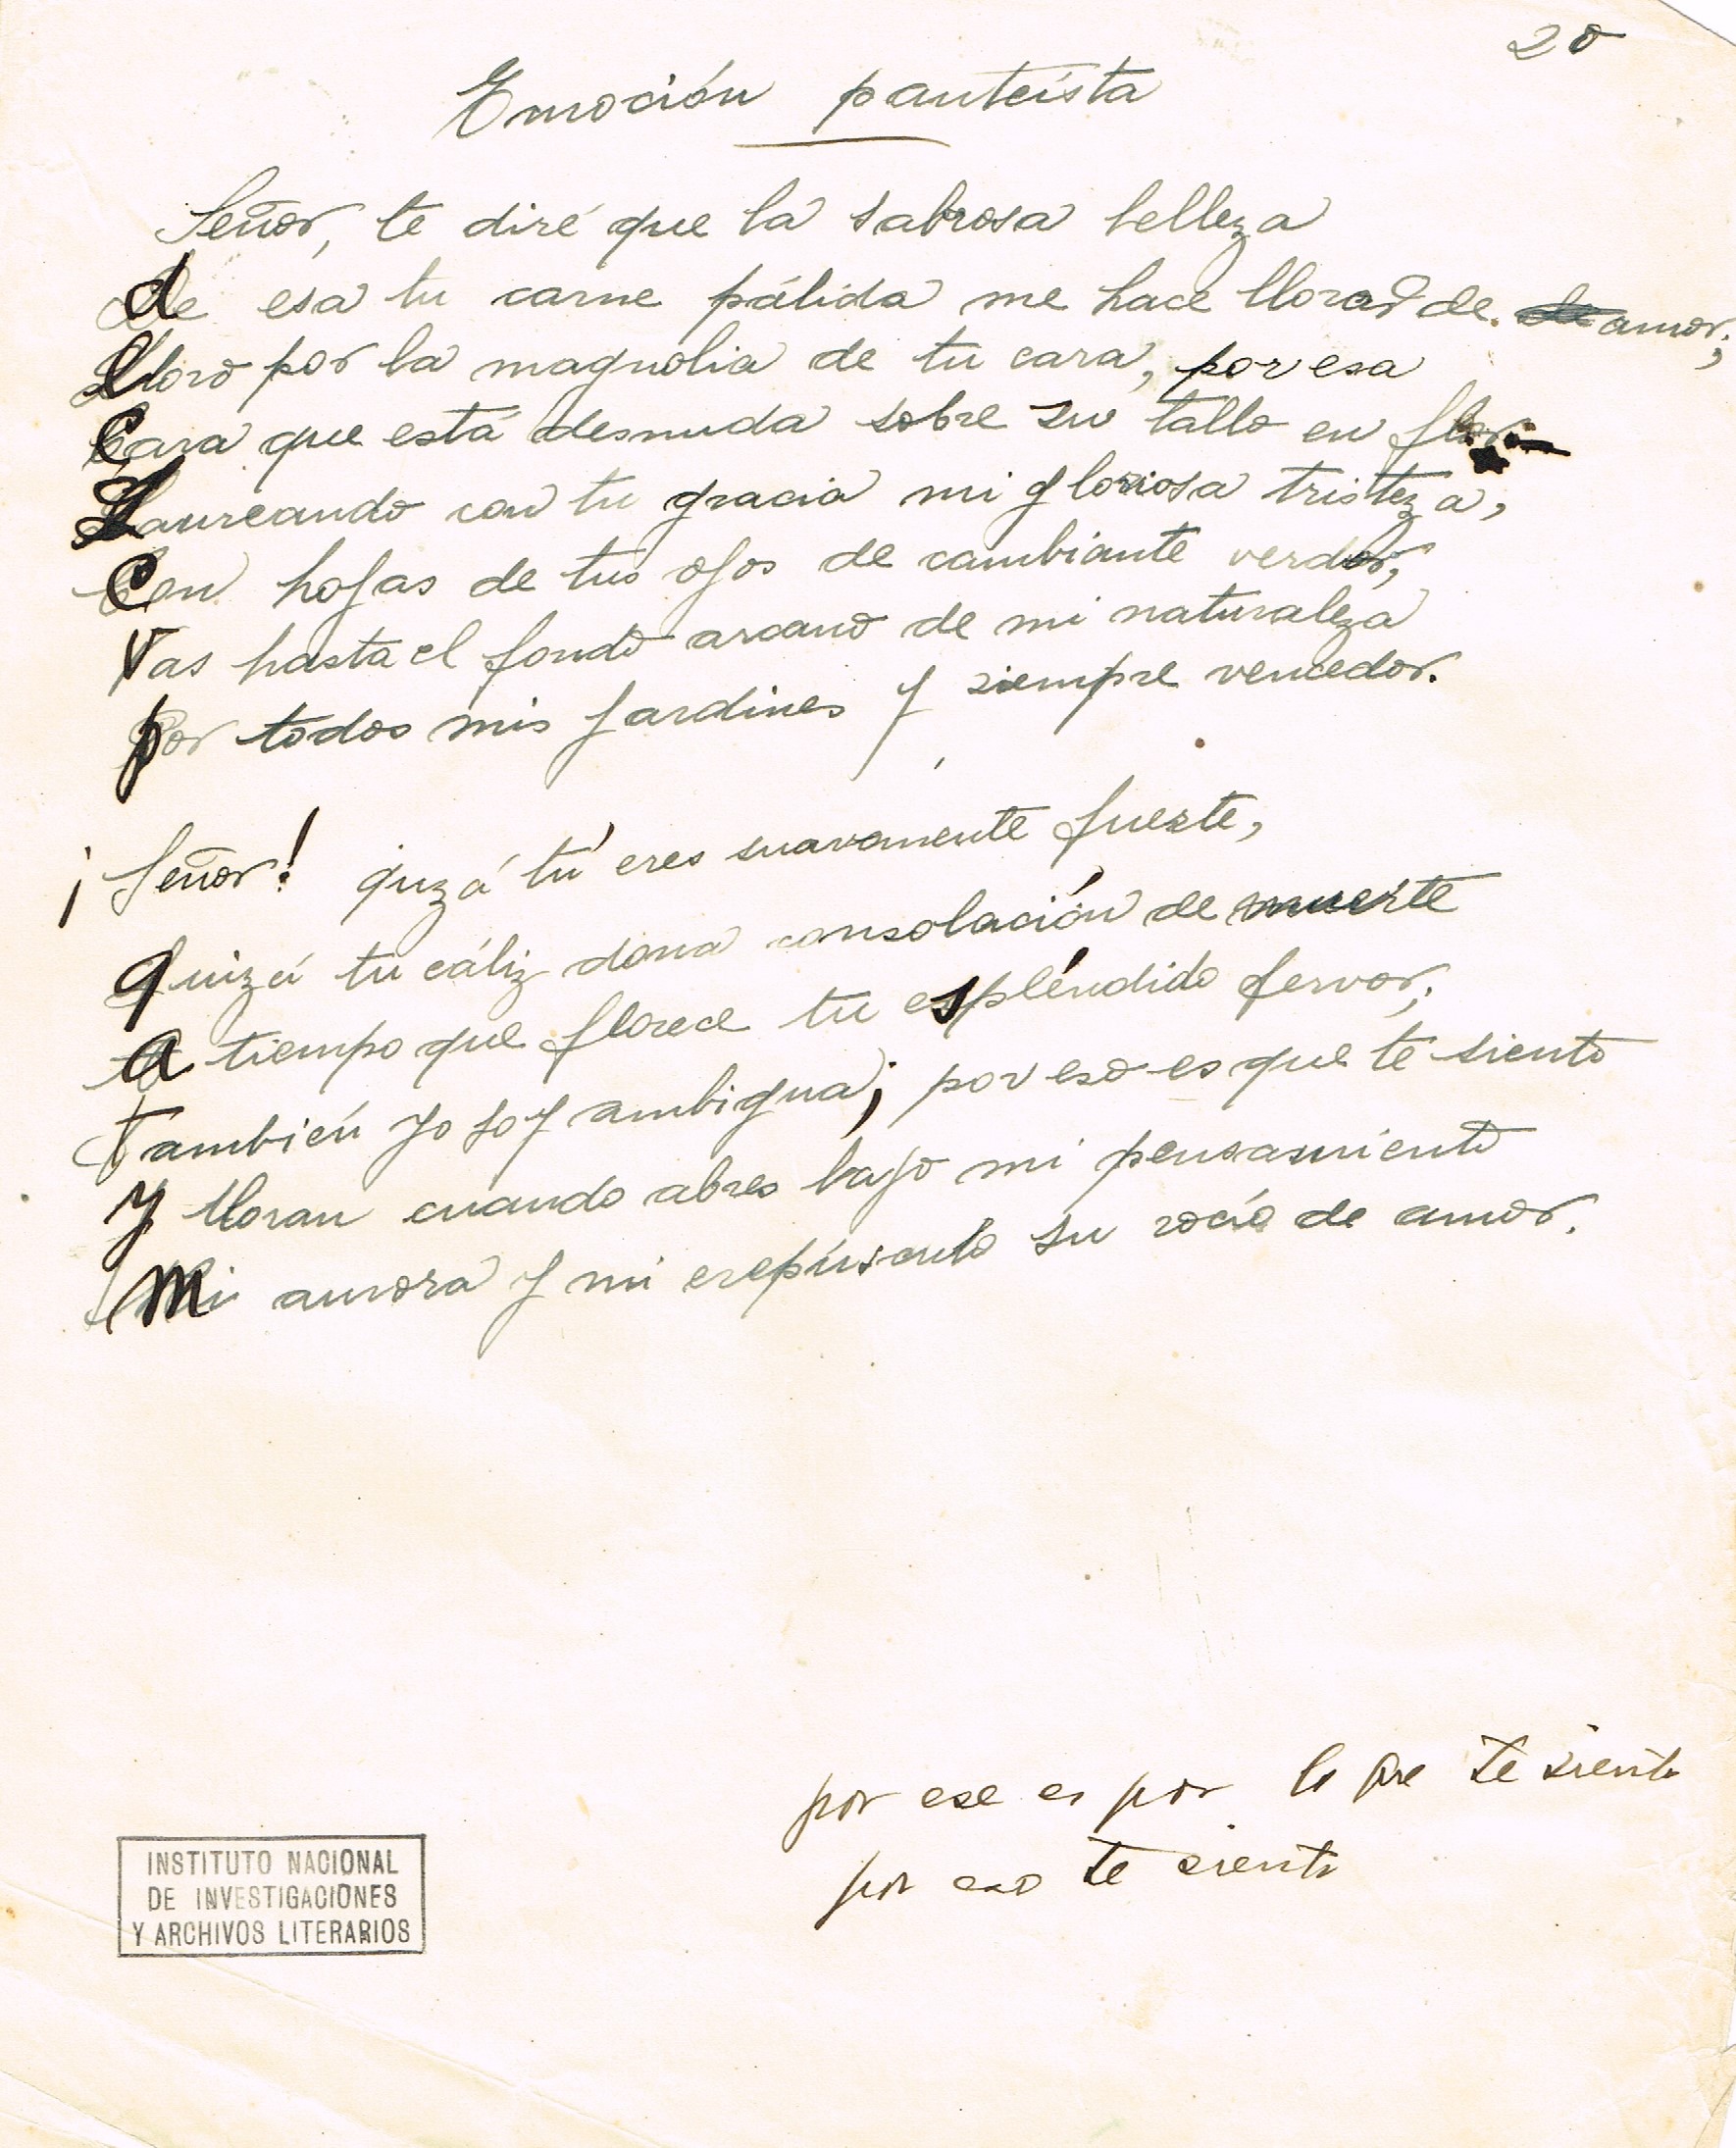 20
Emoción panteísta
Señor, te diré que la sabrosa belleza
de esa tu carne pálida me hace llorar de amor;
lloro por la magnolia de tu cara, por esa
cara que está desnuda sobre su tallo en flor
Laureando con tu gracia mi gloriosa tristeza,
con hojas de tus ojos de cambiante verdor,
vas hasta el fondo arcano de mi naturaleza
por todos mis jardines y siempre vencedor.
¡Señor! quizá tú eres suavemente fuerte,
quizá tu cáliz dona consolación de muerte
a tiempo que florece tu espléndido fervor;
también yo soy ambigua; por eso es que te siento
y lloran cuando abres bajo mi pensamiento
mi aurora y mi crepúsculo su rocío de amor.
por ese es por lo que te siento
por eso te siento
INSTITUTO NACIONAL
DE INVESTIGACIONES
Y ARCHIVOS LITERARIOS